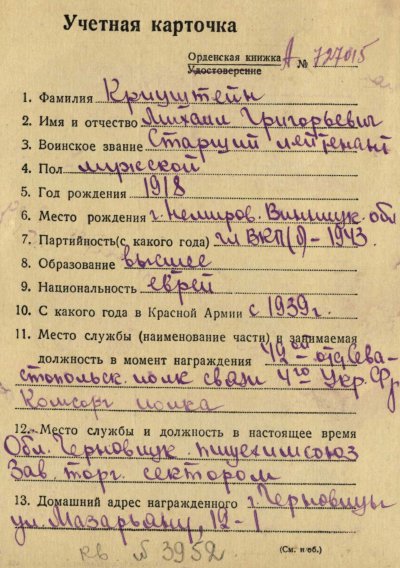 Учетная карточка
Орденская книжка А № 727015
Удостоверение
1. Фамилия Криуштейн
2. Имя и отчество Михаил Григорьевич
3. Воинское звание Старший лейтенант
4. Пол мужской
5. Год рождения 1918
6. Место рождения г. Немиров. Винницк. обл
7. Партийность(с какого года) чл ВКП(б) – 1943.
8. Образование высшее
9. Национальность еврей
10. С какого года в Красной Армии с 1939 г.
11. Место службы (наименование части) и занимаемая
должность в момент награждения 49ый отд Сева-
стопольск. полк связи 4го Укр. Фр
Комсорг полка
12. Место службы и должность в настоящее время
Обл. Черновицк. пищехимсоюз
Зав. торг. сектором
13. Домашний адрес награжденного г. Черновицы
ул Мазарьяну, 12-1
кв № 3952
(См. н об.)